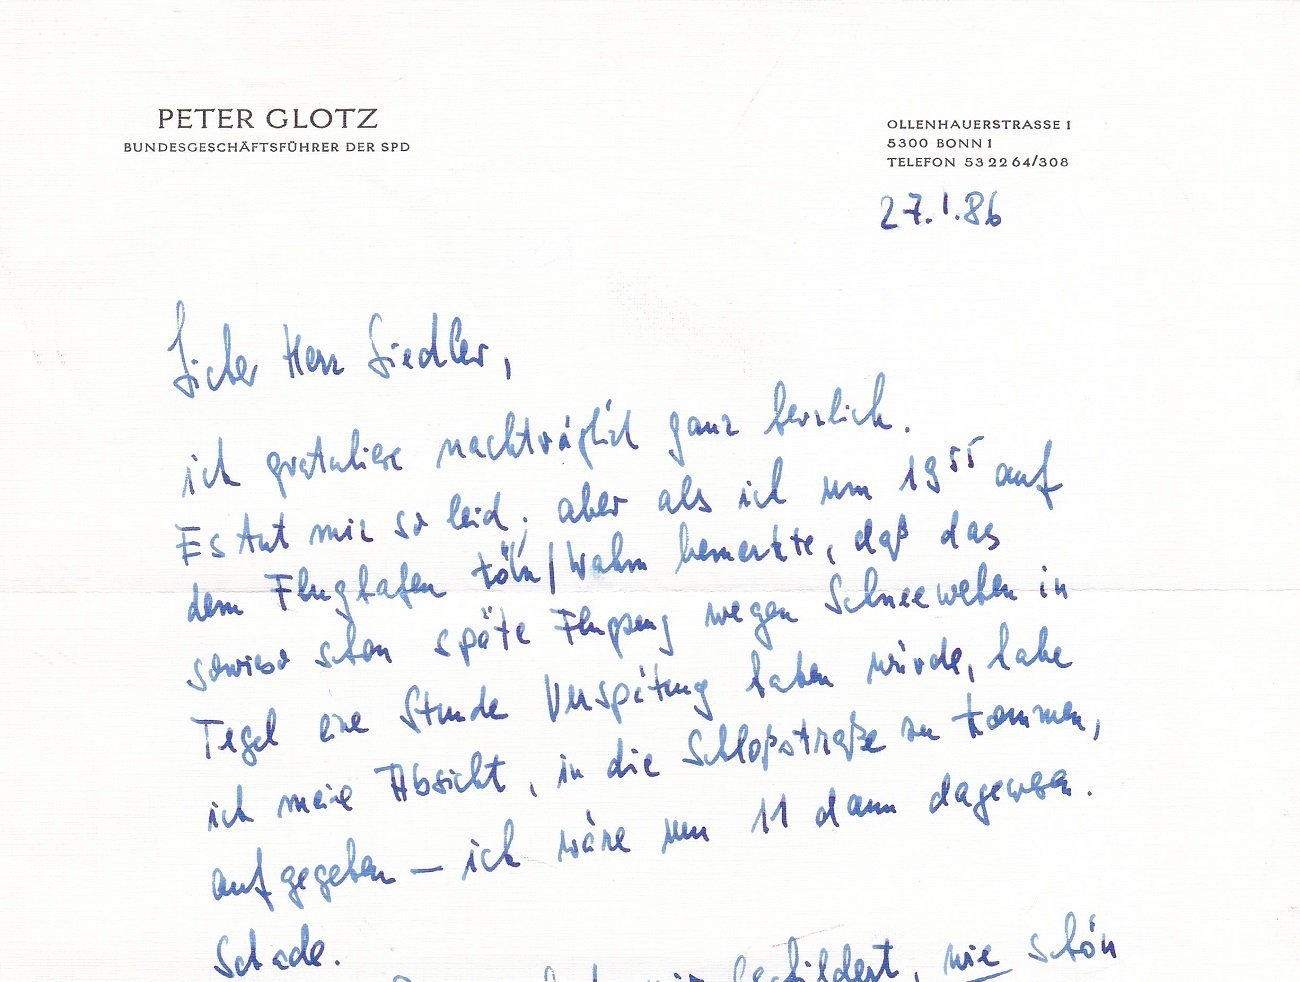 PETER GLOTZ
BUNDESGESCHÄFTSFÜHRER DER SPD
OLLENHAUERSTRASSE 1
5300 BONN 1
TELEFON 53 22 64/308
27.1.86
Lieber Herr Siedler,
ich gratuliere nachträglich ganz herzlich.
Es tut mir so leid; aber als ich um 19 55 auf
dem Flughafen Köln/Wahn bemerkte, daß das
sowieso schon späte Flugzeug wegen Schneewehen in
Tegel eine Stunde Verspätung haben würde, habe
ich meine Absicht, in die Schloßstraße zu kommen,
aufgegeben – ich wäre um 11 dann dagewesen.
Schade.
geschildert, wie schön